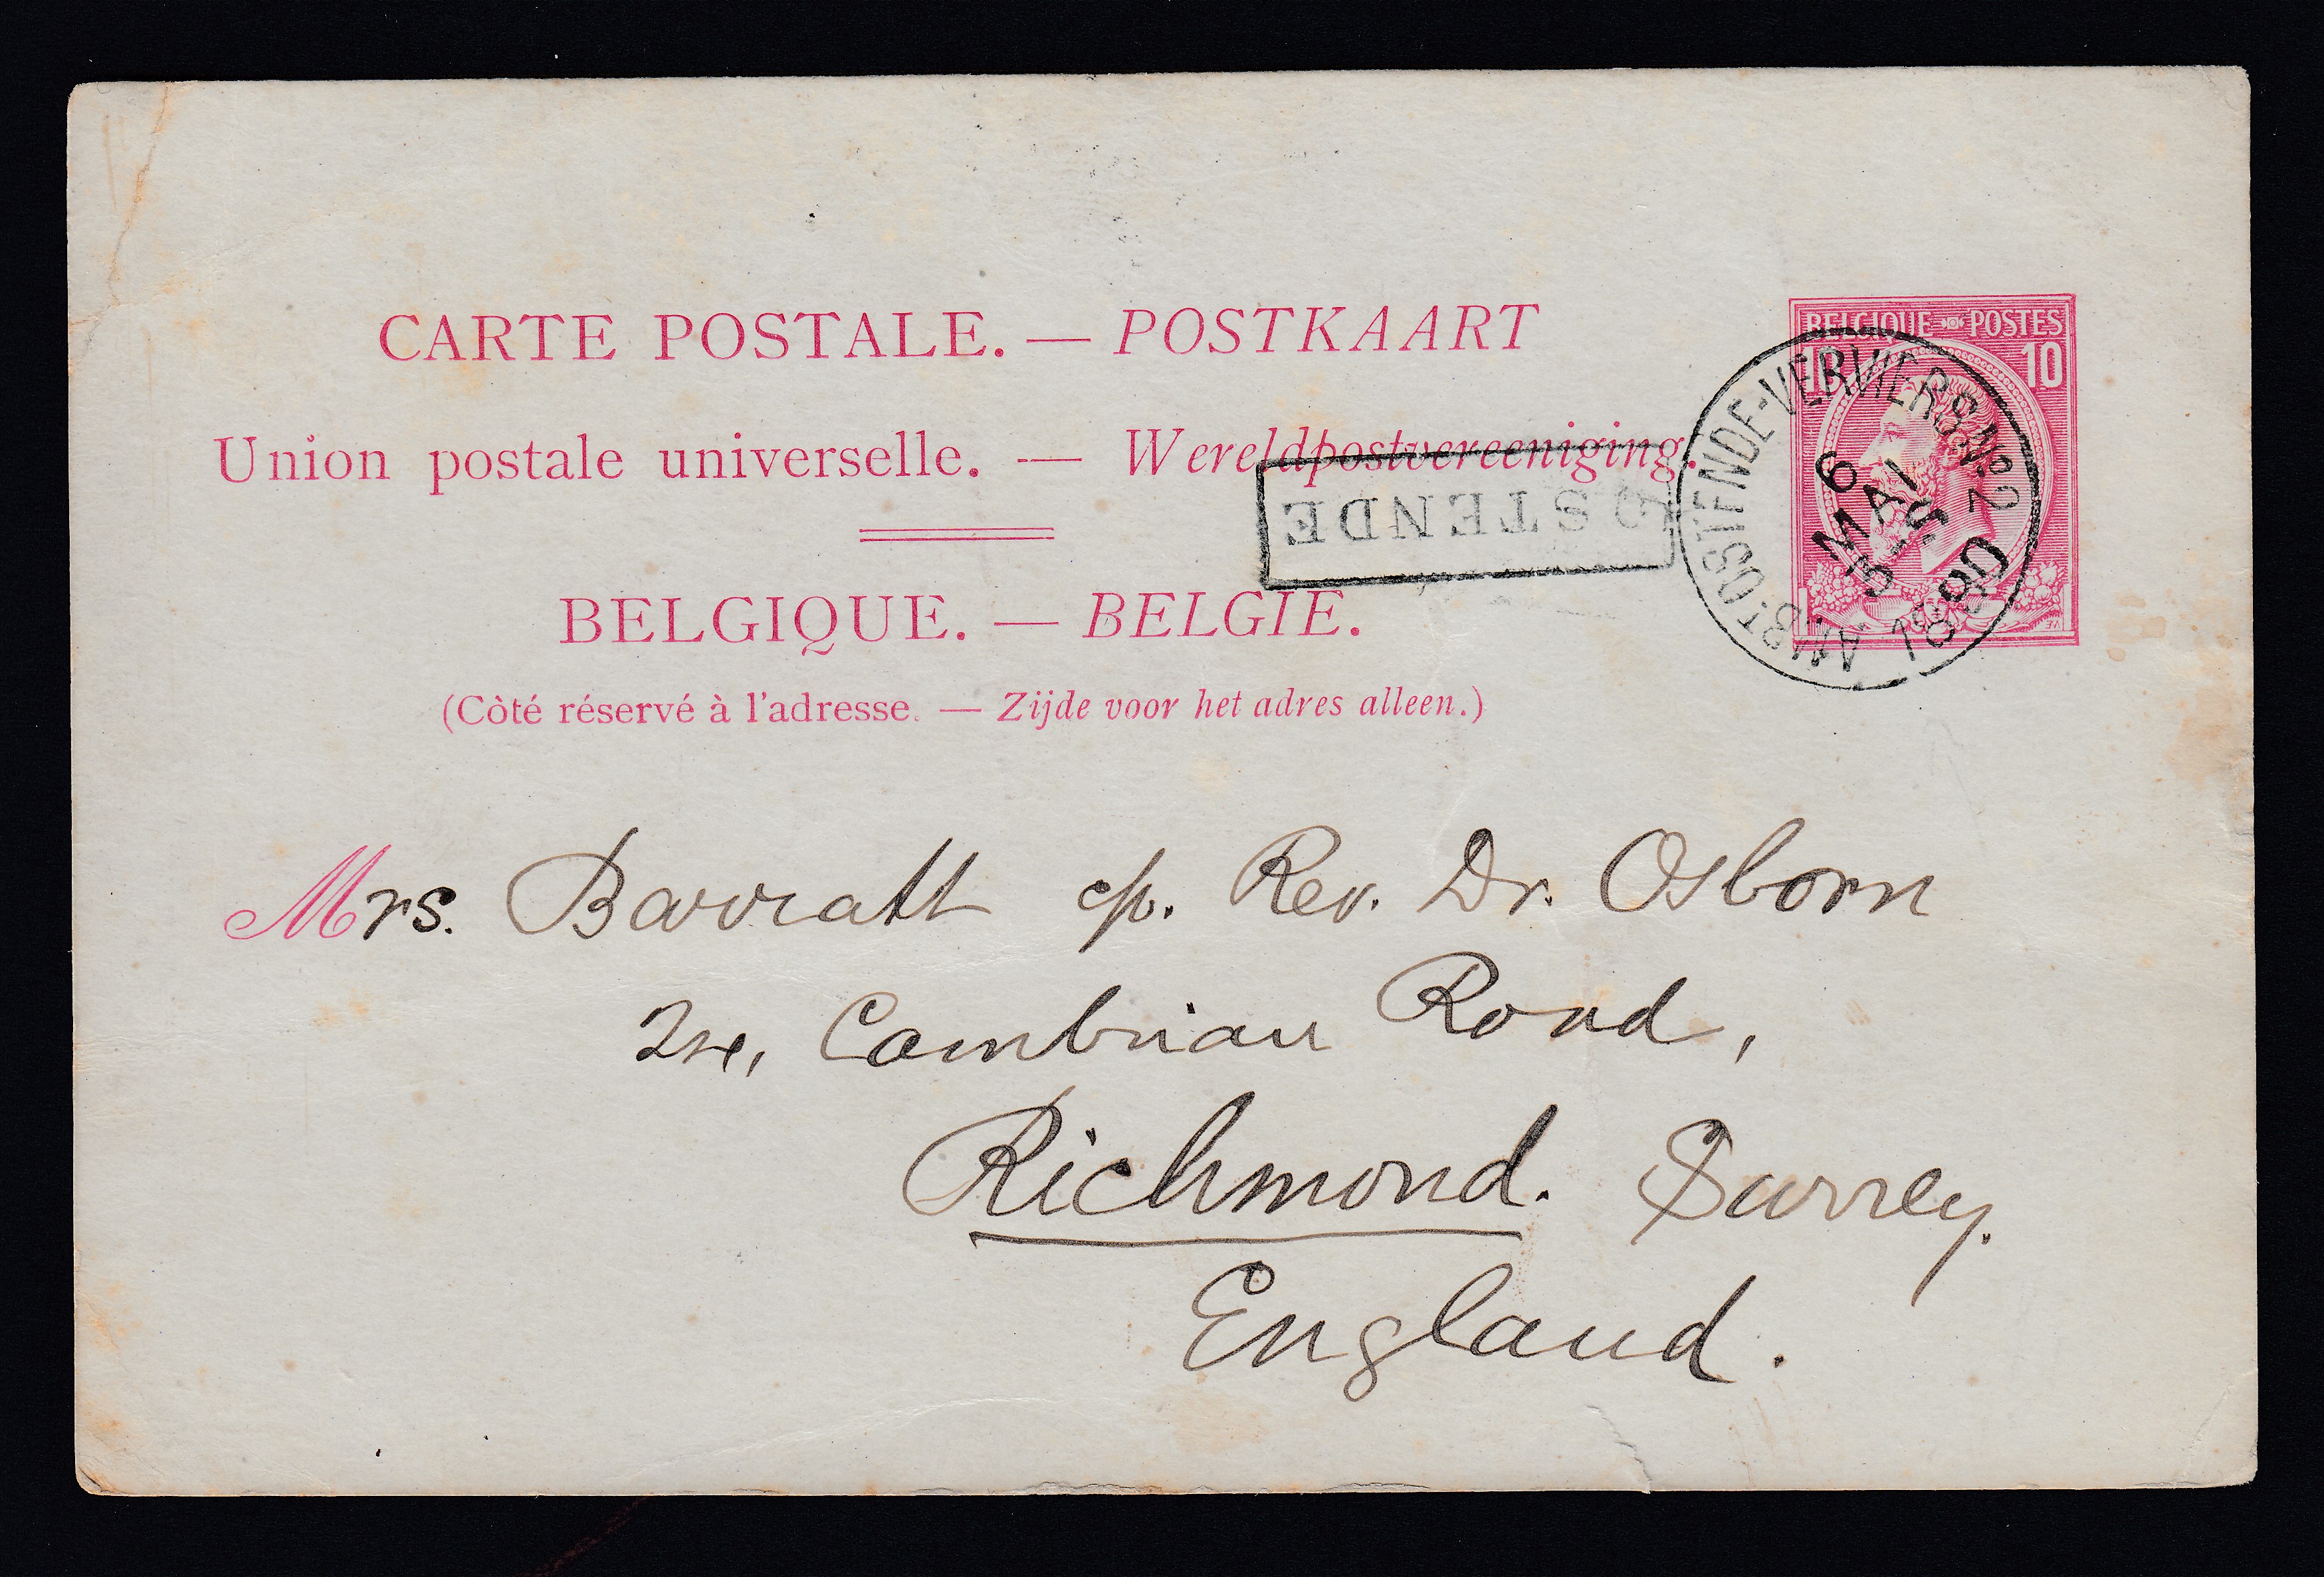 CARTE POSTALE. — POSTKAART
Union postale universelle. — Wereldpostvereeniging.
BELGIQUE. — BELGIE.
(Côté réservé à l'adresse. — Zijde voor het adres alleen.)
BELGIQUE POSTES
10 10
OSTENDE
OSTENDE-VERVIERS No 2
6
MAI
3-S
1890
AMBt.
Mrs. Barratt c/o. Rev. Dr. Osborn
24, Cambrian Road,
Richmond. Surrey.
England.